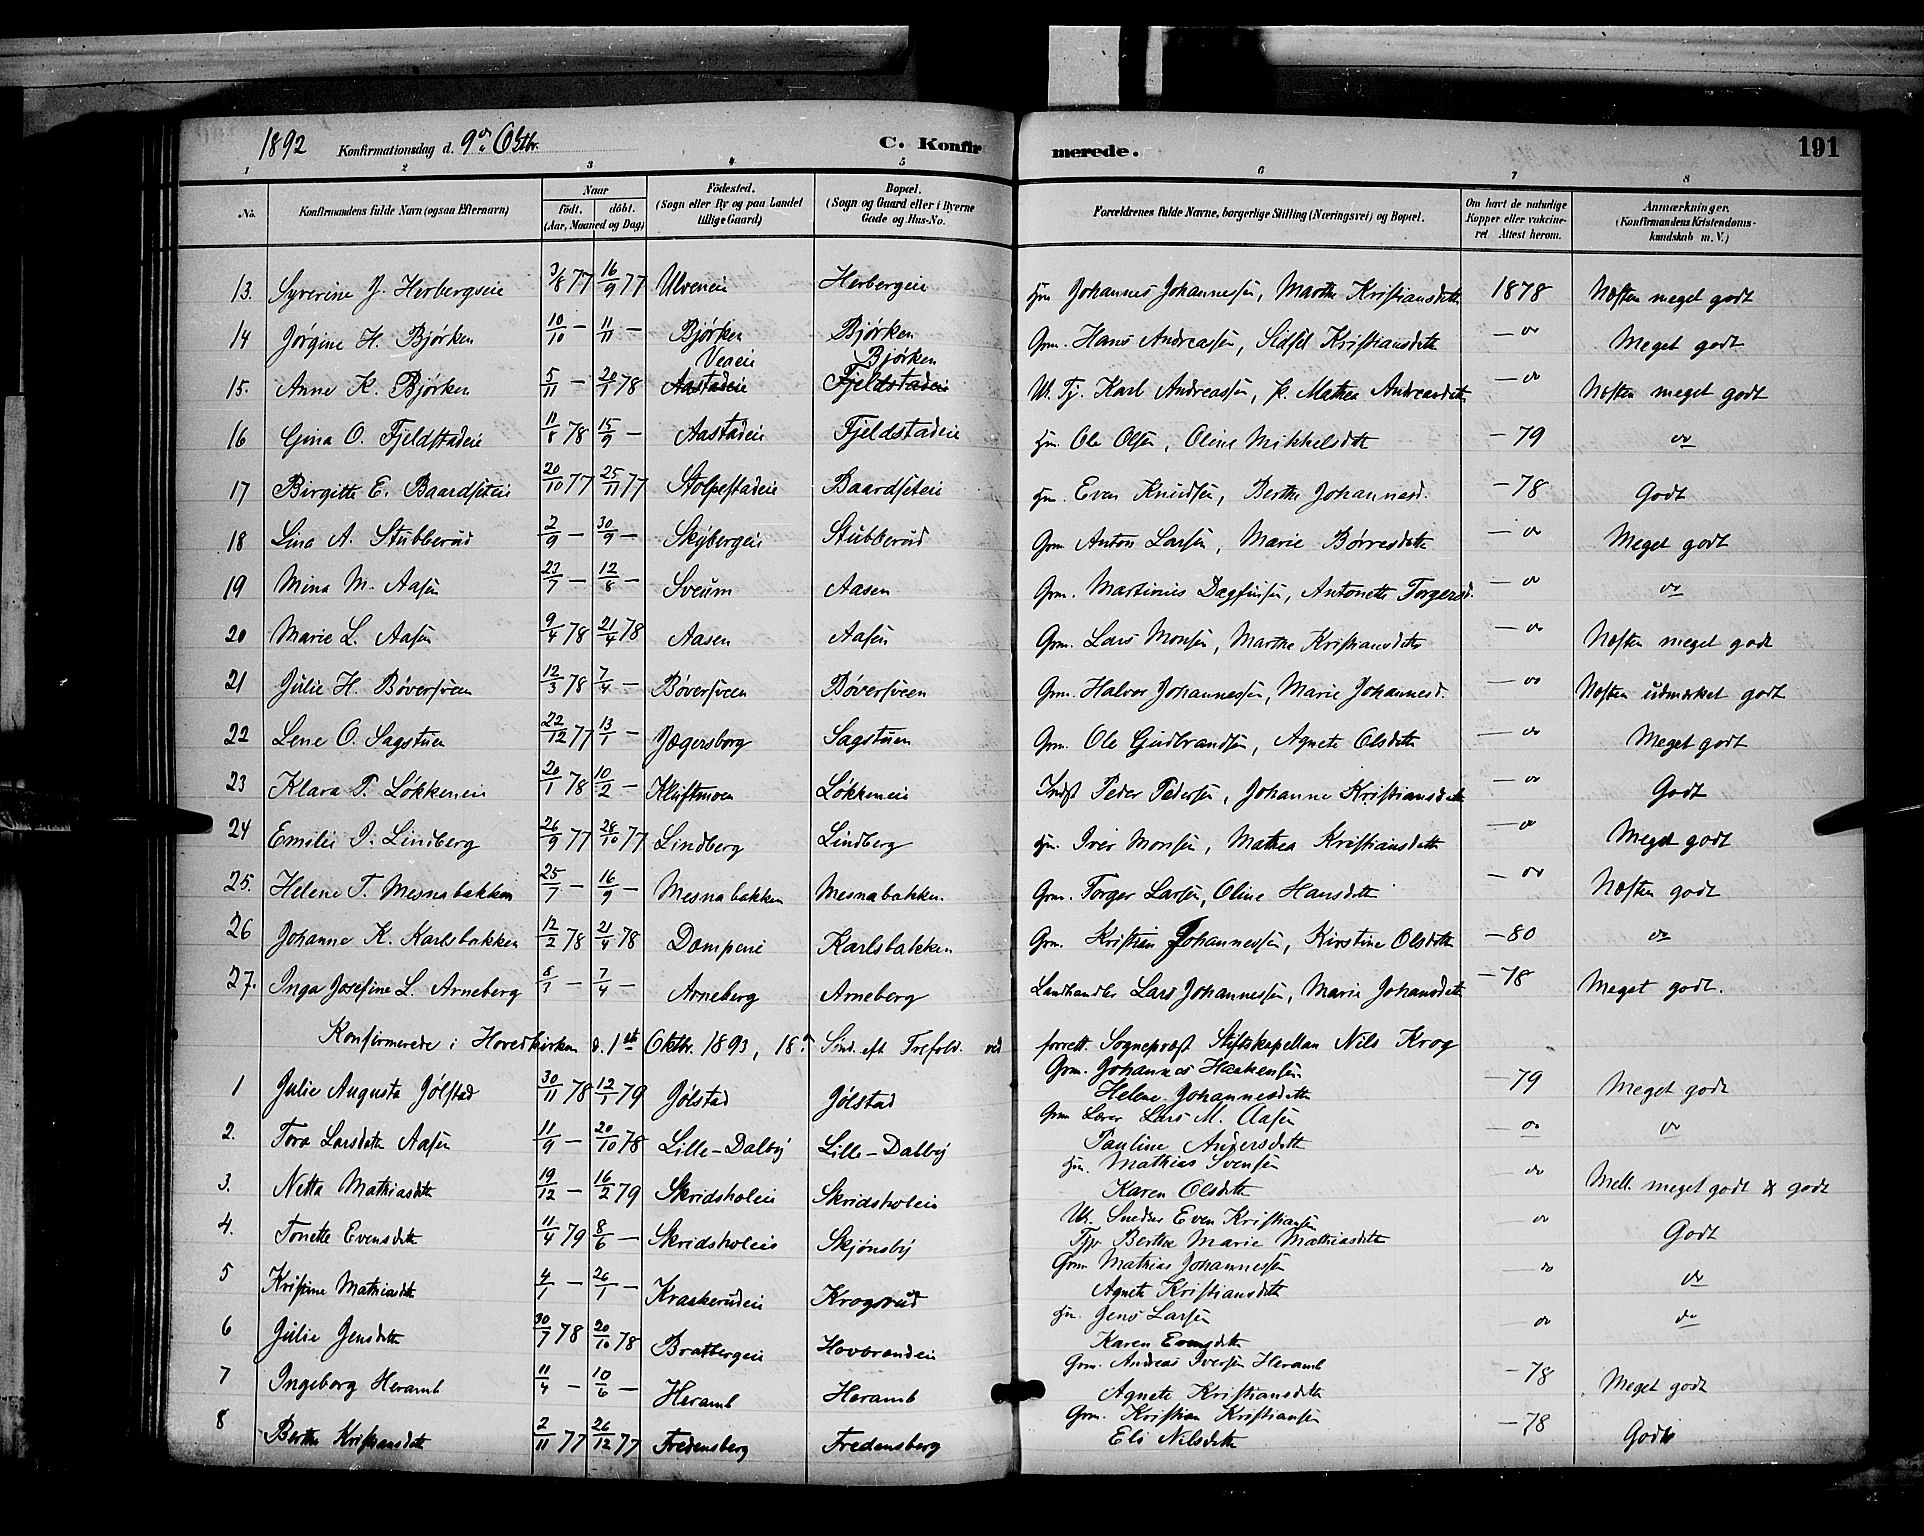 1892 Konfirmationsdag d. 9de Oktbr. C. Konfirmerede. 191
1 2 3 4 5 6 7 8
No. Konfirmandens fulde Navn (ogsaa Efternavn) Naar født, døbt. (Aar, Maaned og Dag) Fødested. (Sogn eller By og paa Landet tillige Gaard) Bopæl. (Sogn og Gaard eller i Byerne Gade og Hus-No. Forældrenes fulde Navne, borgerlige Stilling (Næringsvei) og Bopæl. Om havt de naturlige Kopper eller vakcineret Attest herom. Anmærkninger. (Konfirmandens Kristendomskundskab m. V.)
13. Syverine J. Herbergseie 3/8 77 16/9 77 Ulveneie Herbergeie Hm Johannes Johannessen, Marthe Kristiansdatter 1878 Næsten meget godt
14 Jørgine H. Bjørken 10/10 — 11/11 — Bjørken Bjørken Grm. Hans Andreassen, Sidsel Kristiansdatter — do Meget godt
Veaeie Bjørken
15. Anne K. Bjørken 5/11 — 20/1 78 Aastadeie Fjeldstadeie U. Tj. Karl Andreassen, p. Mathea Andreasdatter — do Næsten meget godt
16 Gina O. Fjeldstadeie 11/8 78 15/9 — Aastadeie Fjeldstadeie Hm. Ole Olsen, Oline Mikkelsdatter — 79 do
17 Birgitte E. Baardseteie 20/10 77 25/11 77 Stolpestadeie Baardseteie Hm. Even Knudsen, Berthe Johannesd. — 78 Godt
18 Lina A. Stubberud 2/9 — 30/9 — Skybergeie Stubberud Grm Anton Larsen, Marie Børresdatter — do Meget godt
19 Mina M. Aasen 23/7 — 12/8 — Sveum Aasen Grm. Martinius Dagfinsen, Antonette Torgersd. — do do
20 Marie L. Aasen 9/4 78 21/4 78 Aasen Aasen Grm. Lars Monsen, Marthe Kristiansdatter — do Næsten meget godt
21 Julie H. Bøversveen 12/3 78 7/4 — Bøversveen Bøversveen Grm. Halvor Johannessen, Marie Johannesd. — do Næsten udmærket godt
22 Lene O. Sagstuen 22/12 77 13/1 — Jægersborg Sagstuen Grm. Ole Gudbrandsen, Agnete Olsdatter — do Meget godt
23 Klara P. Løkkeneie 20/1 78 10/2 — Kluftmoen Løkkeneie Indst Peder Pedersen, Johanne Kristiansdatter — do Godt
24 Emilie I. Lindberg 26/9 77 28/10 77 Lindberg Lindberg Hm. Iver Monsen, Mathea Kristiansdatter — do Meget godt
25. Helene T. Mesnabakken 25/7 — 16/9 — Mesnabakken Mesnabakken. Grm. Torger Larsen, Oline Hansdatter — do Næsten godt
26 Johanne K. Karlsbakken 12/2 78 21/4 78 Dæmpeneie Karlsbakken Grm. Kristian Johannessen, Kirstine Olsdatter — 80 do
27. Inga Josefine L. Arneberg 8/1 — 7/4 — Arneberg Arneberg Landhandler Lars Johannessen, Marie Johansdatter — 78 Meget godt.
Konfirmerede i Hovedkirken d. 1ste Oktbr. 1893, 18de Sønd. eft Trefold. ved forrett. Sognepræst Stiftskapellan Nils Krog
1 Julie Augusta Jølstad 30/11 78 12/1 79 Jølstad Jølstad Grm. Johannes Haakensen — 79 Meget godt
Helene Johannesdatter
2. Tora Larsdatter Aasen 11/9 — 20/10 78 Lille-Dalby Lille-Dalby Grm Lærer Lars M. Aasen — do do
Pauline Andersdatter
3. Netta Mathiasdatter 19/12 — 16/2 79 Skridsholeie Skridsholeie Hm. Mathias Svensen do Mell. meget godt & godt
Karen Olsdatter
4. Tonette Evensdatter 11/4 79 8/6 — Skridsholeie Skjønsby Uk. Snedker Even Kristiansen do Godt
Tjp Berthe Marie Mathiasdatter
5 Kristine Mathiasdatter 4/1 — 26/1 — Kraakerudeie Krogsrud Grm Mathias Johannessen do do
Agnete Kristiansdatter
6 Julie Jensdatter 30/7 78 20/10 78 Bratbergeie Hovbrændeie Hm. Jens Larsen do do
Karen Evensdatter
7 Ingeborg Heramb 11/4 — 10/6 — Heramb Heramb Grm. Andreas Iversen Heramb — 78 Meget godt
Agnete Kristiansdatter
8 Berthe Kristiansdatter 2/11 77 26/12 77 Fredensberg Fredensberg Grm. Kristian Kristiansen — 78 Godt
Eli Nilsdatter